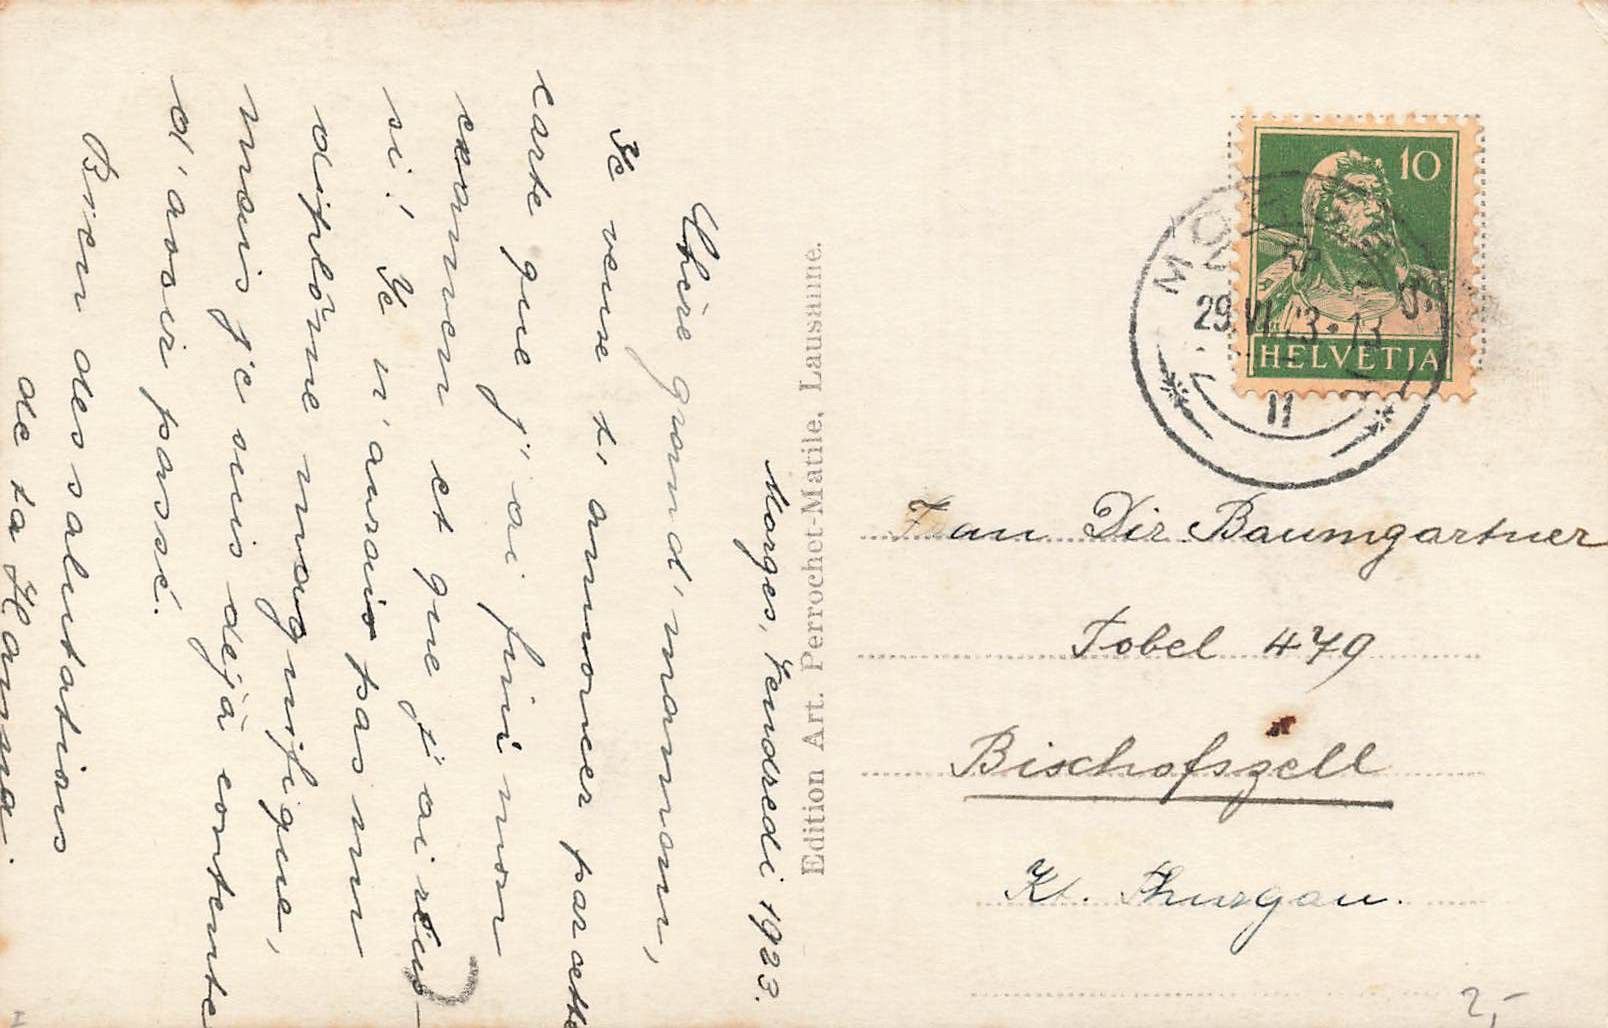 Morges, Vendredi 1923.
Chère grand'maman,
Je veux t'annoncer par cette
carte que j'ai fini mon
examen et que j'ai réus-
si! Je n'aurais pas un
diplôme magnifique,
mais je suis dejà contente
d'avoir passé.
Bien des salutations
de ta Hanna.
Edition Art. Perrochet-Matile, Lausanne.
10
HELVETIA
MORGES
29.VI.23-13
II
Frau Dir. Baumgartner
Tobel 479
Bischofszell
Kt. Thurgau.
2,-